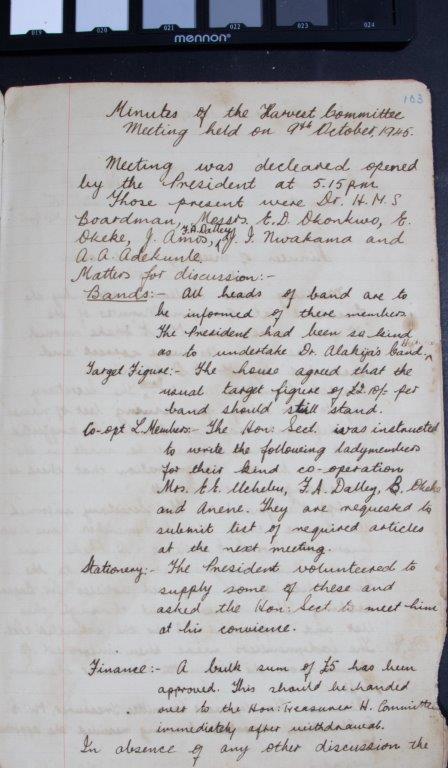 019 020 021 022 023 024
mennon®
103
Minutes of the Harvest Committee
Meeting held on 9th October, 1945.
Meeting was decleared opened
by the President at 5.15pm.
Those present were Dr. H.M.S
Boardman, Messrs. E.D. Okonkwo, E.
F.A. Dalley
Okeke, J. Amos, J. I. Nwakama and
A.A. Adekunle.
Matters for discussion:-
Bands:- All heads of band are to
be informed of there members.
The President had been so kind
as to undertake Dr. Alakija's band.
Target Figure:- The house agreed that the
usual target figure of £2.10/- per
band should still stand.
Co-opt L. Members:- The Hon: Sect. was instructed
to write the following ladymembers
for their kind co-operation
Mrs. E.E. Uchebu, F.A. Dalley, B. Okeke
and Anene. They are requested to
submit list of required articles
at the next meeting.
Stationery:- The President volunteered to
supply some of these and
asked the Hon: Sect to meet him
at his convience.
Finance:- A bulk sum of £5 has been
approved. This should be handed
over to the Hon: Treasurer H. Committee
immediately after withdrawal.
In absence of any other discussion the